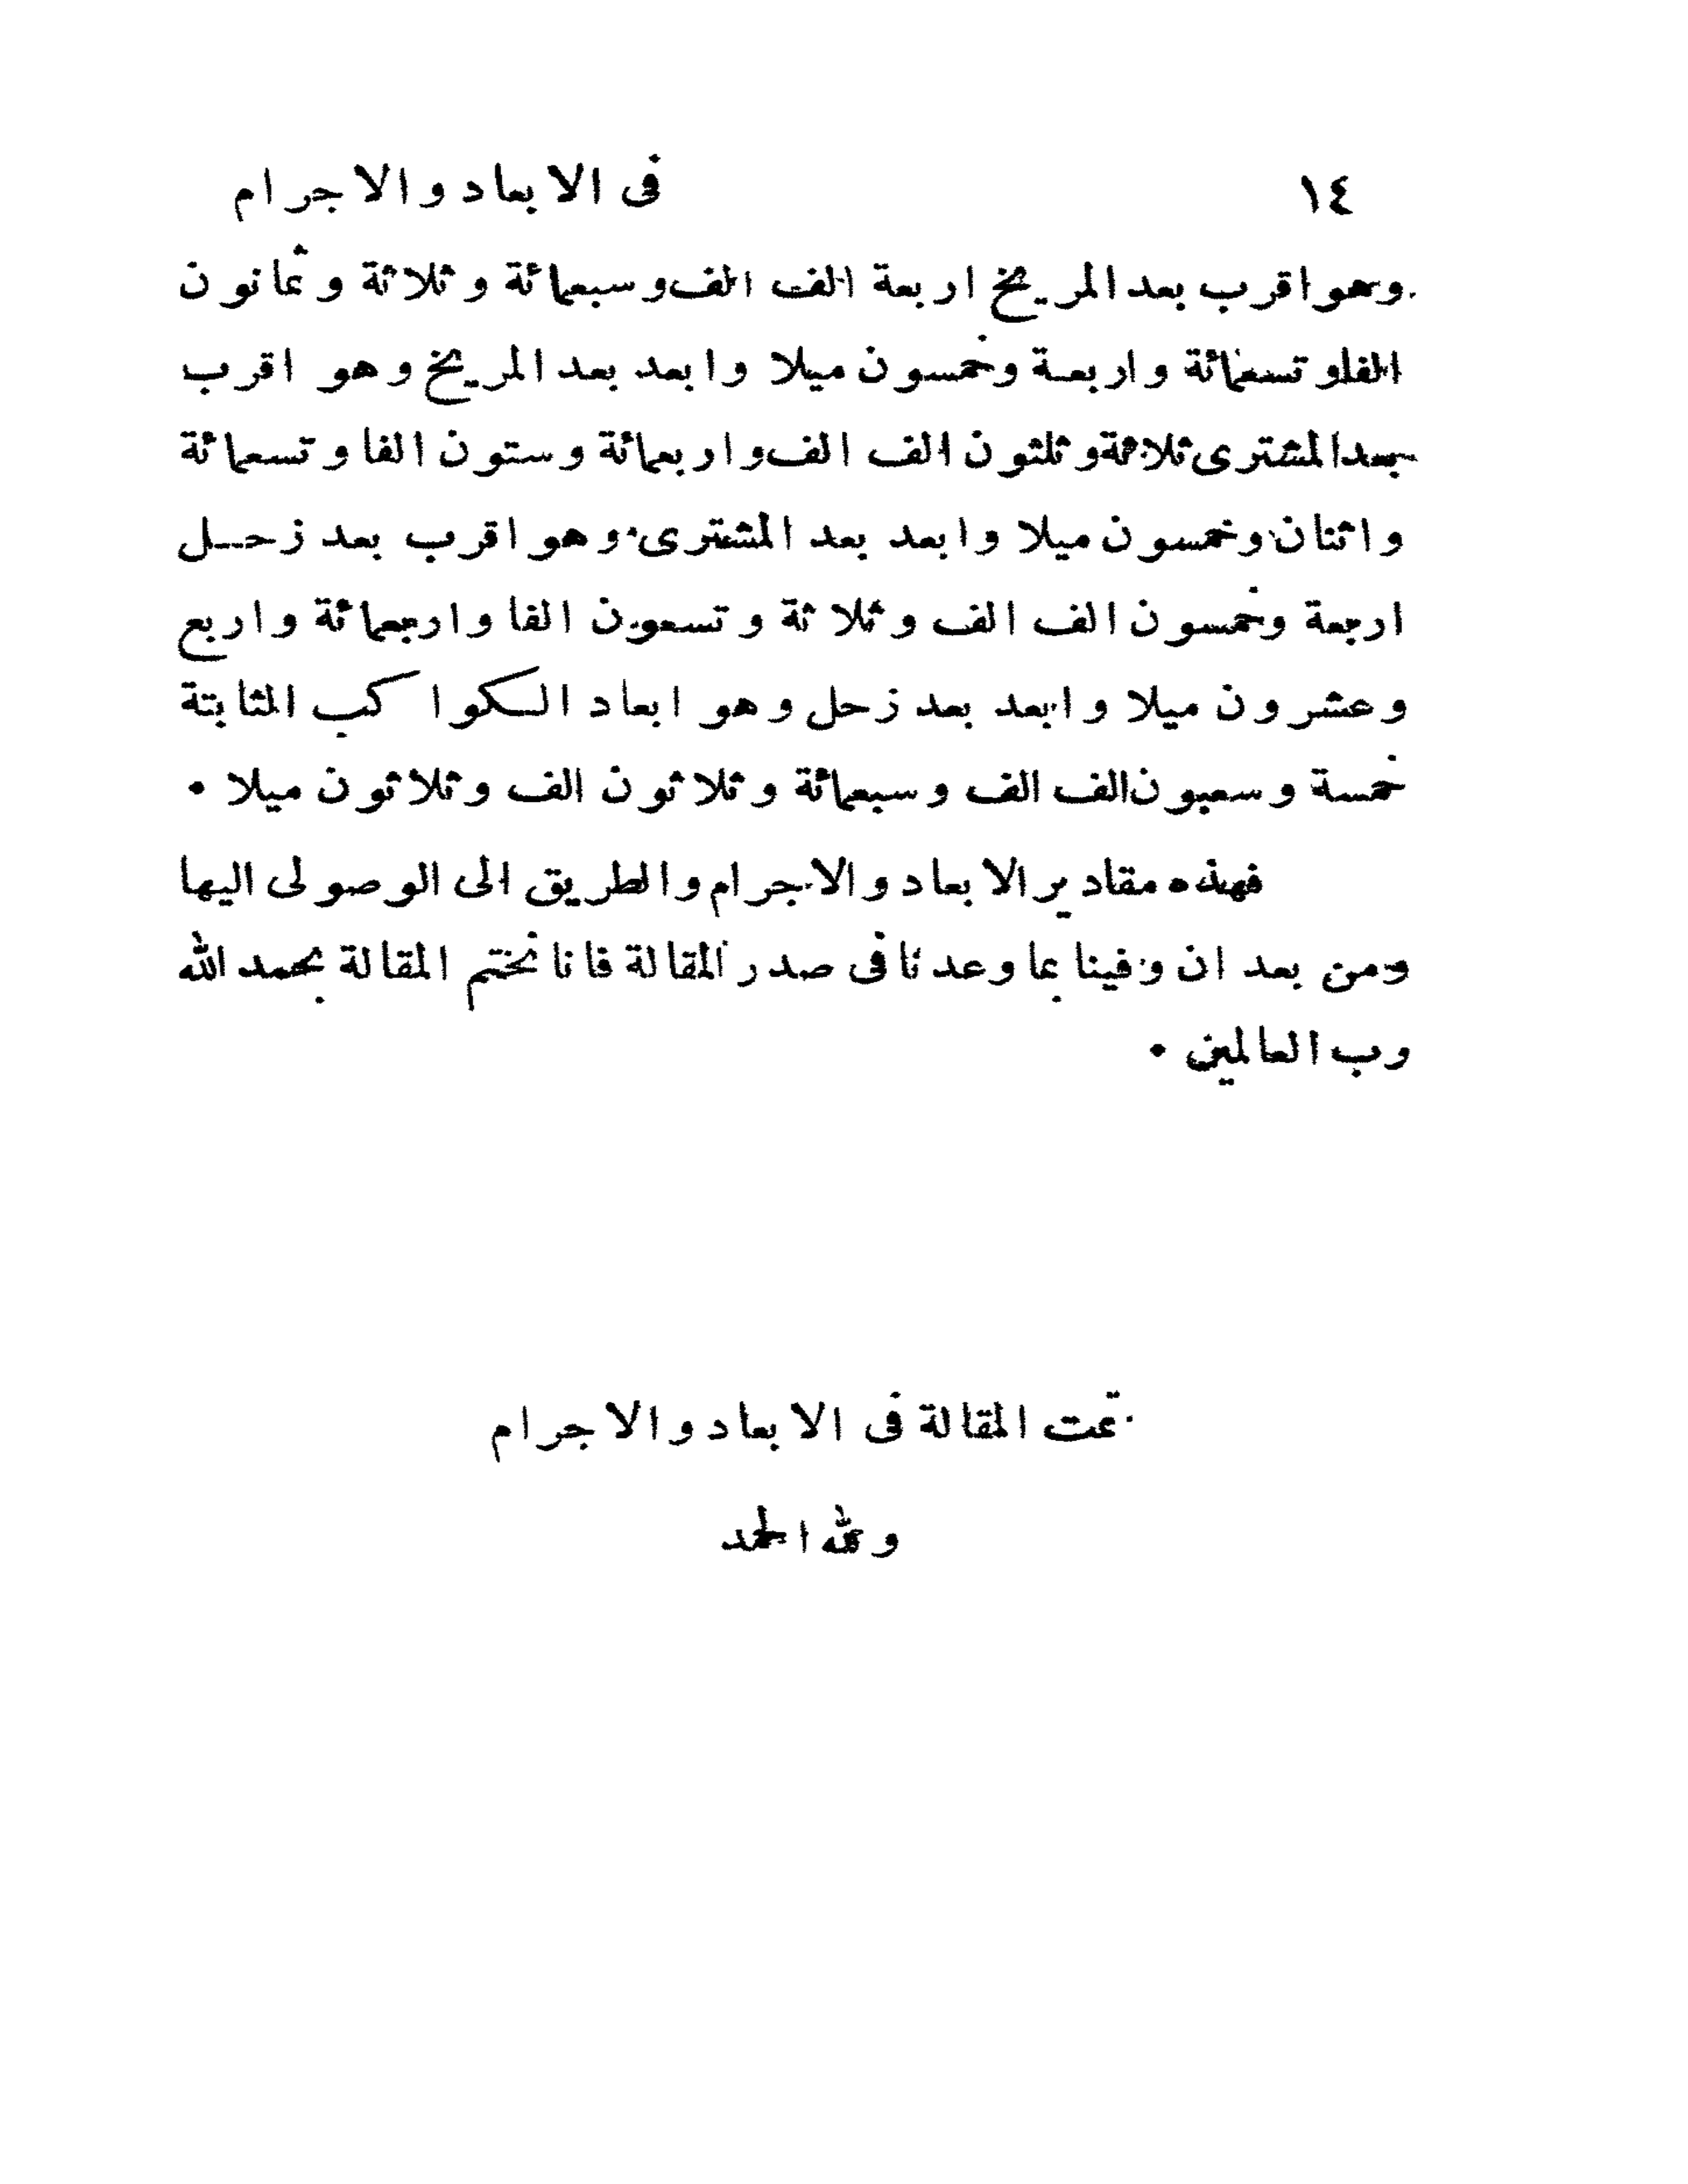 ١٤ فى الابعاد والاجرام
وهو اقرب بعد المريخ اربعة الف الف وسبعمائة وثلاثة وثمانون
الفا وتسعمائة واربعة وخمسون ميلا وابعد بعد المريخ وهو اقرب
بعد المشترى ثلاثة وثلثون الف الف واربعمائة وستون الفا وتسعمائة
واثنان وخمسون ميلا وابعد بعد المشترى وهو اقرب بعد زحل
اربعة وخمسون الف الف وثلاثة وتسعون الفا واربعمائة واربع
وعشرون ميلا وابعد بعد زحل وهو ابعاد الكواكب الثابتة
خمسة وسعبون الف الف وسبعمائة وثلاثون الف وثلاثون ميلا •
فهذه مقادير الابعاد والاجرام والطريق الى الوصولى اليها
ومن بعد ان وفينا بما وعدنا فى صدر المقالة فانا نختم المقالة بحمد الله
ورب العالمين •
تمت المقالة فى الابعاد والاجرام
ولله الحمد